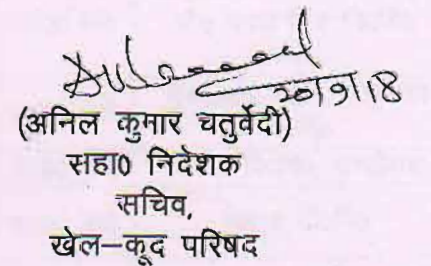 20/9/18
(अनिल कुमार चतुर्वेदी)
सहा0 निदेशक
सचिव,
खेल–कूद परिषद